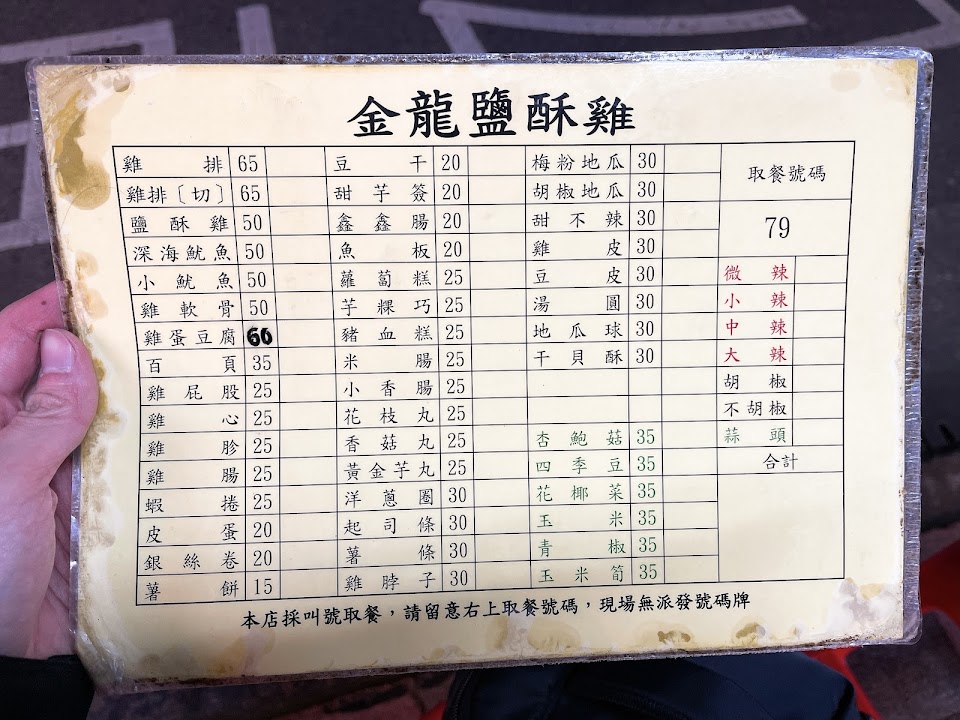 金龍鹽酥雞
雞排 65 豆干 20 梅粉地瓜 30 取餐號碼
雞排〔切〕 65 甜芋簽 20 胡椒地瓜 30
鹽酥雞 50 鑫鑫腸 20 甜不辣 30 79
深海魷魚 50 魚板 20 雞皮 30
小魷魚 50 蘿蔔糕 25 豆皮 30 微辣
雞軟骨 50 芋粿巧 25 湯圓 30 小辣
雞蛋豆腐 60 豬血糕 25 地瓜球 30 中辣
百頁 35 米腸 25 干貝酥 30 大辣
雞屁股 25 小香腸 25 胡椒
雞心 25 花枝丸 25 不胡椒
雞胗 25 香菇丸 25 杏鮑菇 35 蒜頭
雞腸 25 黃金芋丸 25 四季豆 35 合計
蝦捲 25 洋蔥圈 30 花椰菜 35
皮蛋 20 起司條 30 玉米 35
銀絲卷 20 薯條 30 青椒 35
薯餅 15 雞脖子 30 玉米筍 35
本店採叫號取餐，請留意右上取餐號碼，現場無派發號碼牌